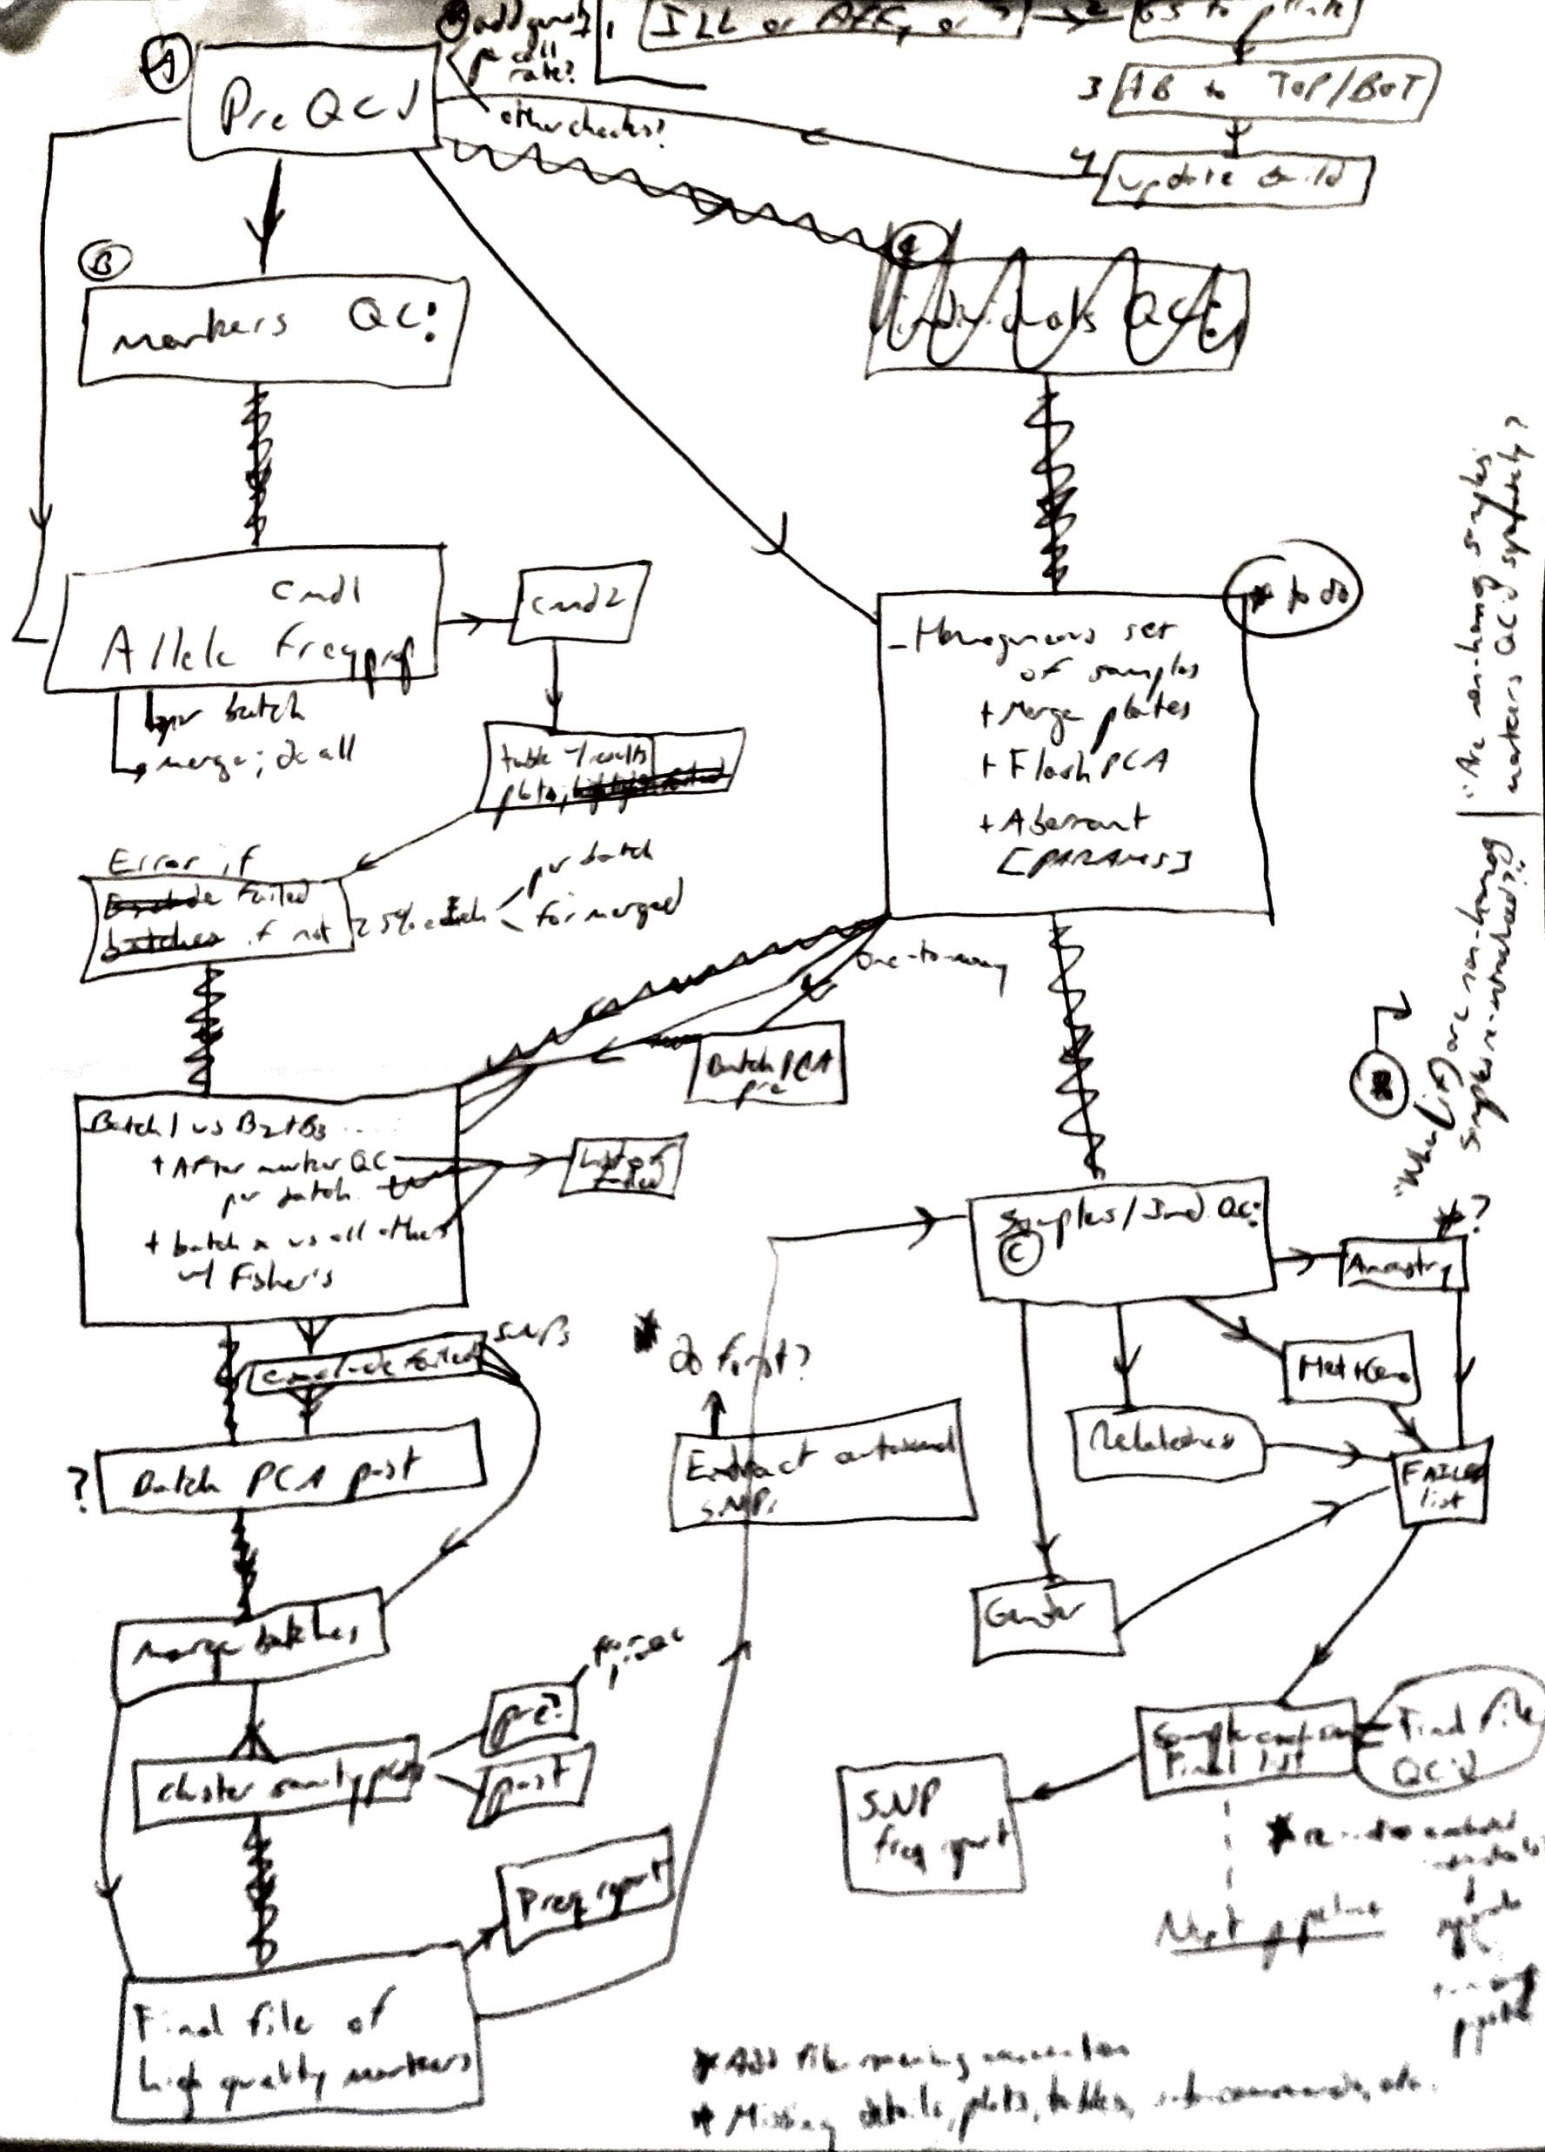 A
PreQC
add
per call
rate?
other checks?
1
ILL or AFF, or ?
2
GS to plink
3 AB to TOP/BOT
4
update build
B
Markers QC:
Individuals QC:
cmd1
Allele Freq prep
cmd2
per batch
merge; do all
table w/ results
plots,
Error if
Exclude Failed
batches if not
per batch
for merged
* to do
- Homogeneous set
of samples
+ Merge plates
+ FlashPCA
+ Aberrant
[PARAMS]
"Are non-homog samples/
markers QC'd separately?
"When (if) are non-homog
samples re-introduced?"
*
one-to-many
Batch PCA
pre
Batch 1 vs B2+B3
+ After marker QC
per batch
+ batch x vs all others
w/ Fisher's
List of
failed
exclude failed
SNPs
? Batch PCA post
Merge batches
cluster sanity
pre?
post
Freq report
Final file of
high quality markers
* do first?
Extract autosomal
SNPs
Samples/Ind. QC:
C
*?
Ancestry
Het+Geno
Relatedness
FAILED
list
Gender
Final list
Final file
QC'd
SNP
freq report
Next pipeline
* Add file naming convention
* Missing details, plots, tables, sub-commands, etc.